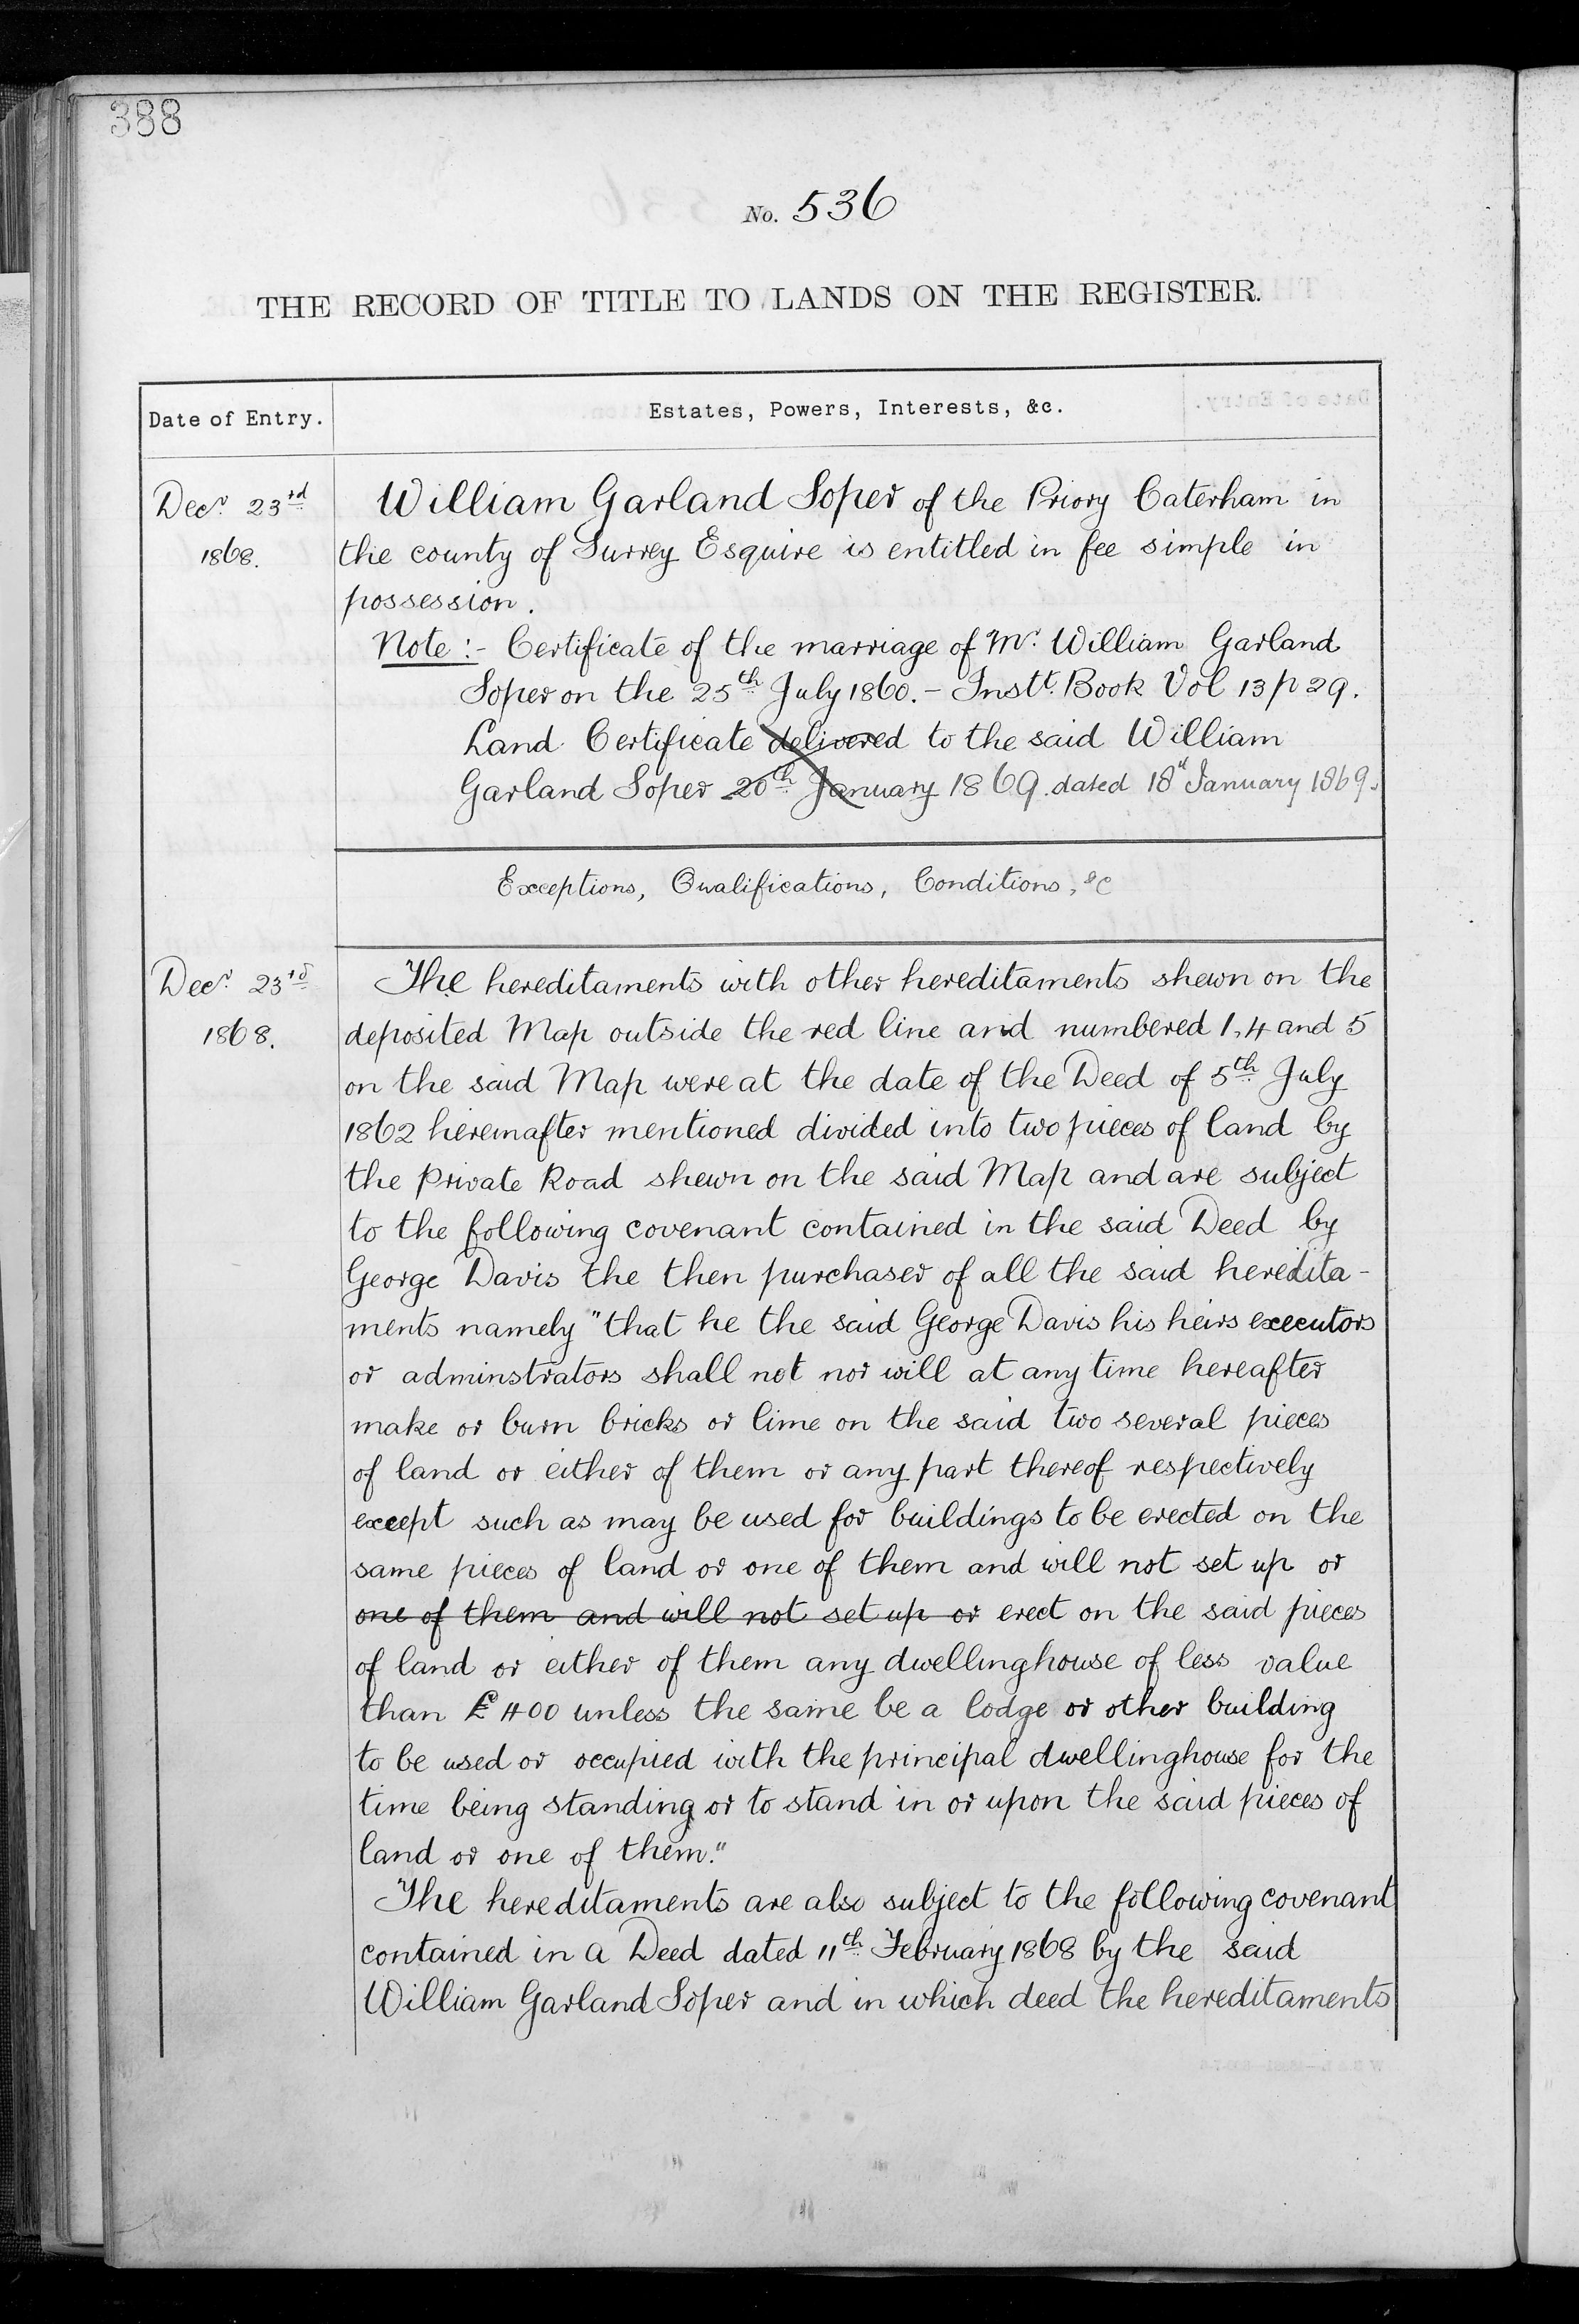 388
No. 536
THE RECORD OF TITLE TO LANDS ON THE REGISTER.
Date of Entry.
Estates, Powers, Interests, &c.
Decr 23rd
1868.
William Garland Soper of the Priory Caterham in
the county of Surrey Esquire is entitled in fee simple in
possession.
Note:- Certificate of the marriage of Mr. William Garland
Soper on the 25th July 1860. - Instt. Book Vol 13 p 29.
Land Certificate delivered to the said William
Garland Soper 20th January 1869. dated 18th January 1869.
Exceptions, Qualifications, Conditions, &c
Decr 23rd
1868.
The hereditaments with other hereditaments shewn on the
deposited Map outside the red line and numbered 1, 4 and 5
on the said Map were at the date of the Deed of 5th July
1862 hereinafter mentioned divided into two pieces of land by
the Private Road shewn on the said Map and are subject
to the following covenant contained in the said Deed by
George Davis the then purchaser of all the said heredita-
ments namely "that he the said George Davis his heirs executors
or adminstrators shall not nor will at any time hereafter
make or burn bricks or lime on the said two several pieces
of land or either of them or any part thereof respectively
except such as may be used for buildings to be erected on the
same pieces of land or one of them and will not set up or
one of them and will not set up or erect on the said pieces
of land or either of them any dwellinghouse of less value
than £400 unless the same be a lodge or other building
to be used or occupied with the principal dwellinghouse for the
time being standing or to stand in or upon the said pieces of
land or one of them."
The hereditaments are also subject to the following covenant
contained in a Deed dated 11th February 1868 by the said
William Garland Soper and in which deed the hereditaments